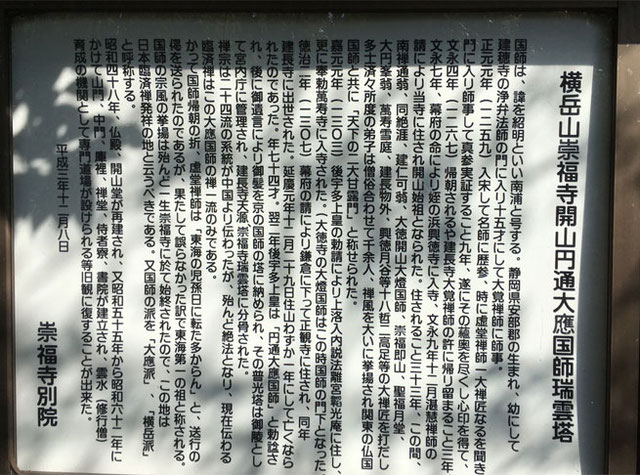 横岳山崇福寺開山円通大應国師瑞雲塔
国師は、諱を紹明といい南浦と号する。静岡県安部郡の生まれ、幼にして
建穂寺の浄弁法師の門に入り十五才にして大覚禅師に師事。
正元元年(一二五九)入宋して名師に歴参、時に虚堂禅師一大禅匠なるを聞き
門に入り師事して真参実証すること九年、遂にその蘊奥を尽くし心印を得て、
文永四年(一二六七)帰朝されるや建長寺大覚禅師の許に帰り留まること三年
文永七年、幕府の命により姪の浜興徳寺に入寺、文永九年十二月湛慧禅師の
請により当寺に住され開山始祖となられた。住されること三十三年、この間、
南禅通翁、同絶涯、建仁可翁、大徳開山大燈国師、崇福即山、聖福月堂、
大円峯翁、萬寿雪庭、建長物外、興徳月谷等十八哲二高足等の大禅匠を打だし
多士済々所度の弟子は僧俗合わせて千余人、禅風を大いに挙揚され関東の仏国
国師と共に「天下の二大甘露門」と称せられた。
嘉元元年(一三〇三)後宇多上皇の勅請により上洛入内説法離宮韜光庵に住し、
更に奉勅萬寿寺に入寺された。(大徳寺の大燈国師はこの時国師の門下となった
徳治二年(一三〇七)幕府の請により鎌倉に下って正観寺に住され、同年
建長寺に出世された。延慶元年十二月二十九日住山わずか一年にして亡くなら
れたのであった。年七十四才。翌二年後宇多上皇は「円通大應国師」と勅諡さ
れ、後に御遺言により御髪を京の国師の塔に納められ、その普光塔は御陵とし
て宮内庁に管理され、建長寺天源 崇福寺瑞雲塔に分骨された。
禅宗は二十四流の系統が中国より伝わったが、殆んど絶法となり、現在伝わる
臨済禅はこの大應国師の禅一流のみである。
かつて国師帰朝の折、虚堂禅師は「東海の児孫日に転た多からん」と、送行の
偈を送られたのであるが、果たして誤らなかった訳で東海第一の祖と称される。
国師の宗風の挙揚は殆んど一生崇福寺に於て始終されたので、この地は
日本臨済禅発祥の地と云うべきである。又国師の派を「大應派」、「横岳派」
と呼称する。
昭和四十八年、仏殿、開山堂が再建され、又昭和五十五年から昭和六十二年に
かけて山門、中門、庫裡、禅堂、侍者寮、書院が建立され、雲水(修行僧)
育成の機関として専門道場が設けられる等旧観に復することが出来た。
平成三年十二月八日
崇福寺別院